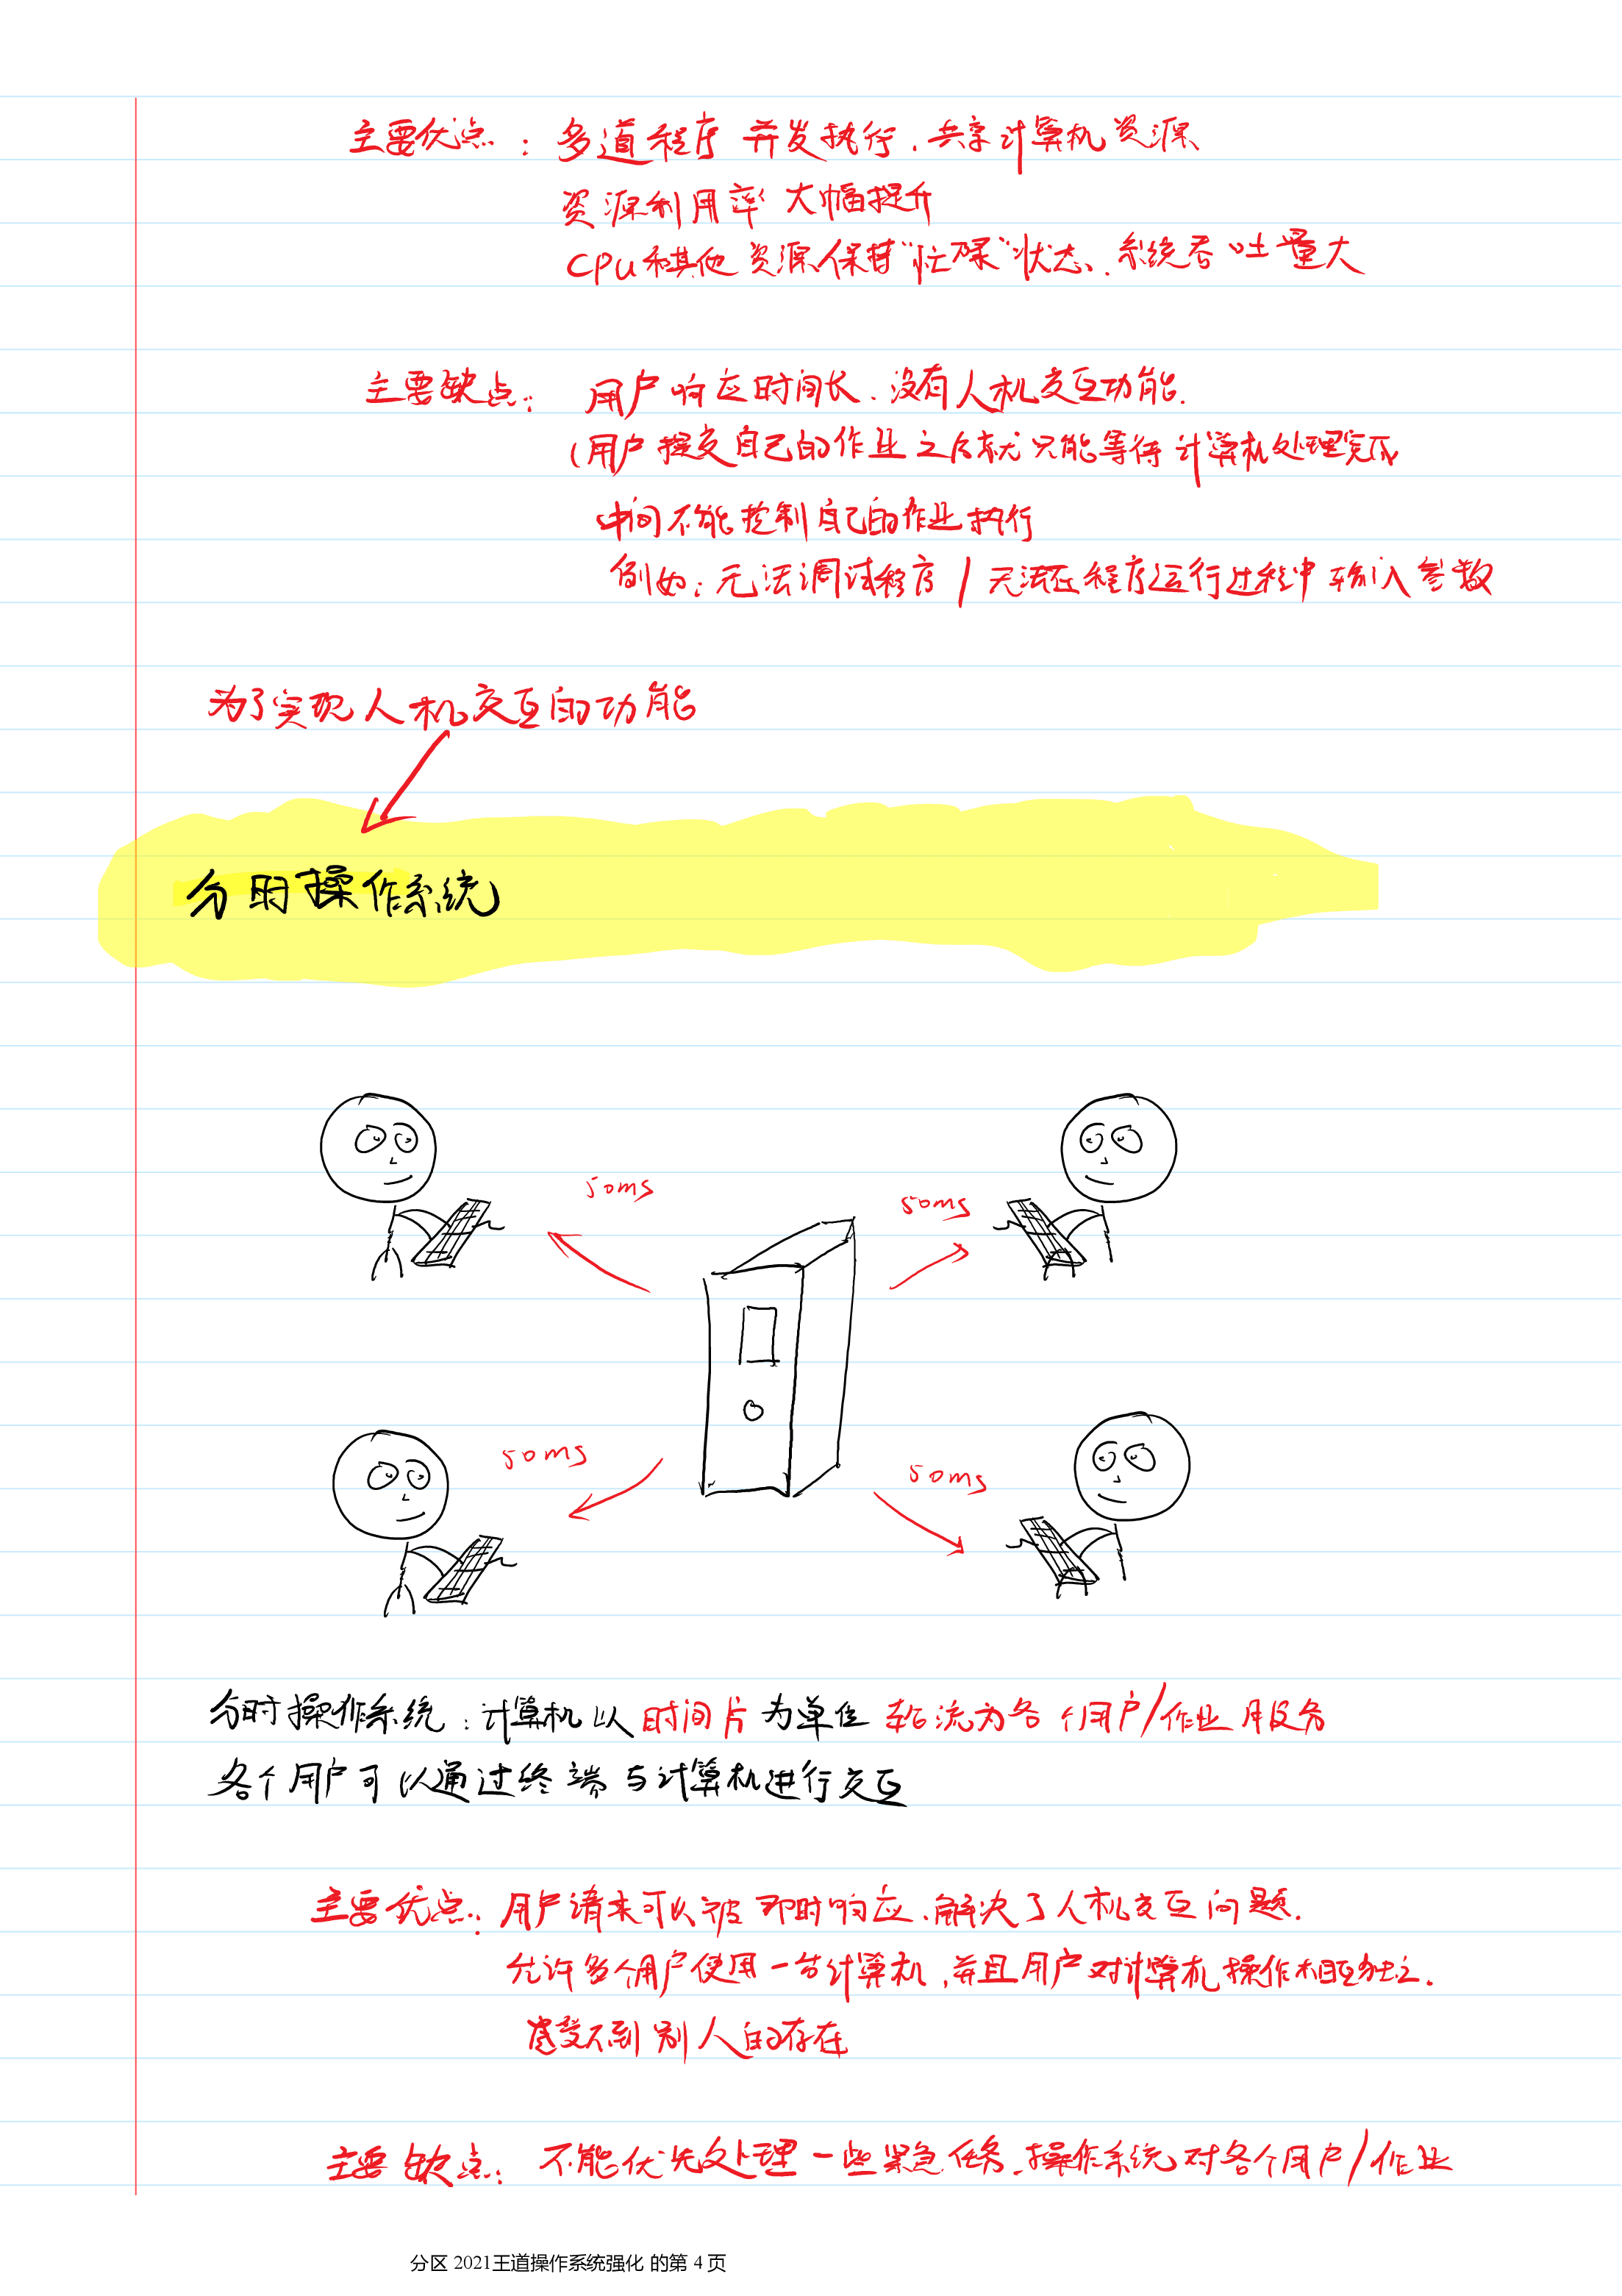 主要优点：多道程序 并发执行，共享计算机资源
资源利用率 大幅提升
CPU和其他资源保持"忙碌"状态，系统吞吐量大
主要缺点：用户响应时间长，没有人机交互功能.
(用户提交自己的作业之后就只能等待计算机处理完成
中间不能控制自己的作业执行
例如：无法调试程序/无法在程序运行过程中输入参数
为了实现人机交互的功能
分时操作系统
50ms
50ms
50ms
50ms
分时操作系统：计算机以时间片为单位 轮流为各个用户/作业服务
各个用户可以通过终端与计算机进行交互
主要优点：用户请求可以被即时响应，解决了人机交互问题.
允许多个用户使用一台计算机，并且用户对计算机操作相互独立.
感受不到别人的存在
主要缺点：不能优先处理一些紧急任务，操作系统对各个用户/作业
分区 2021王道操作系统强化 的第 4 页